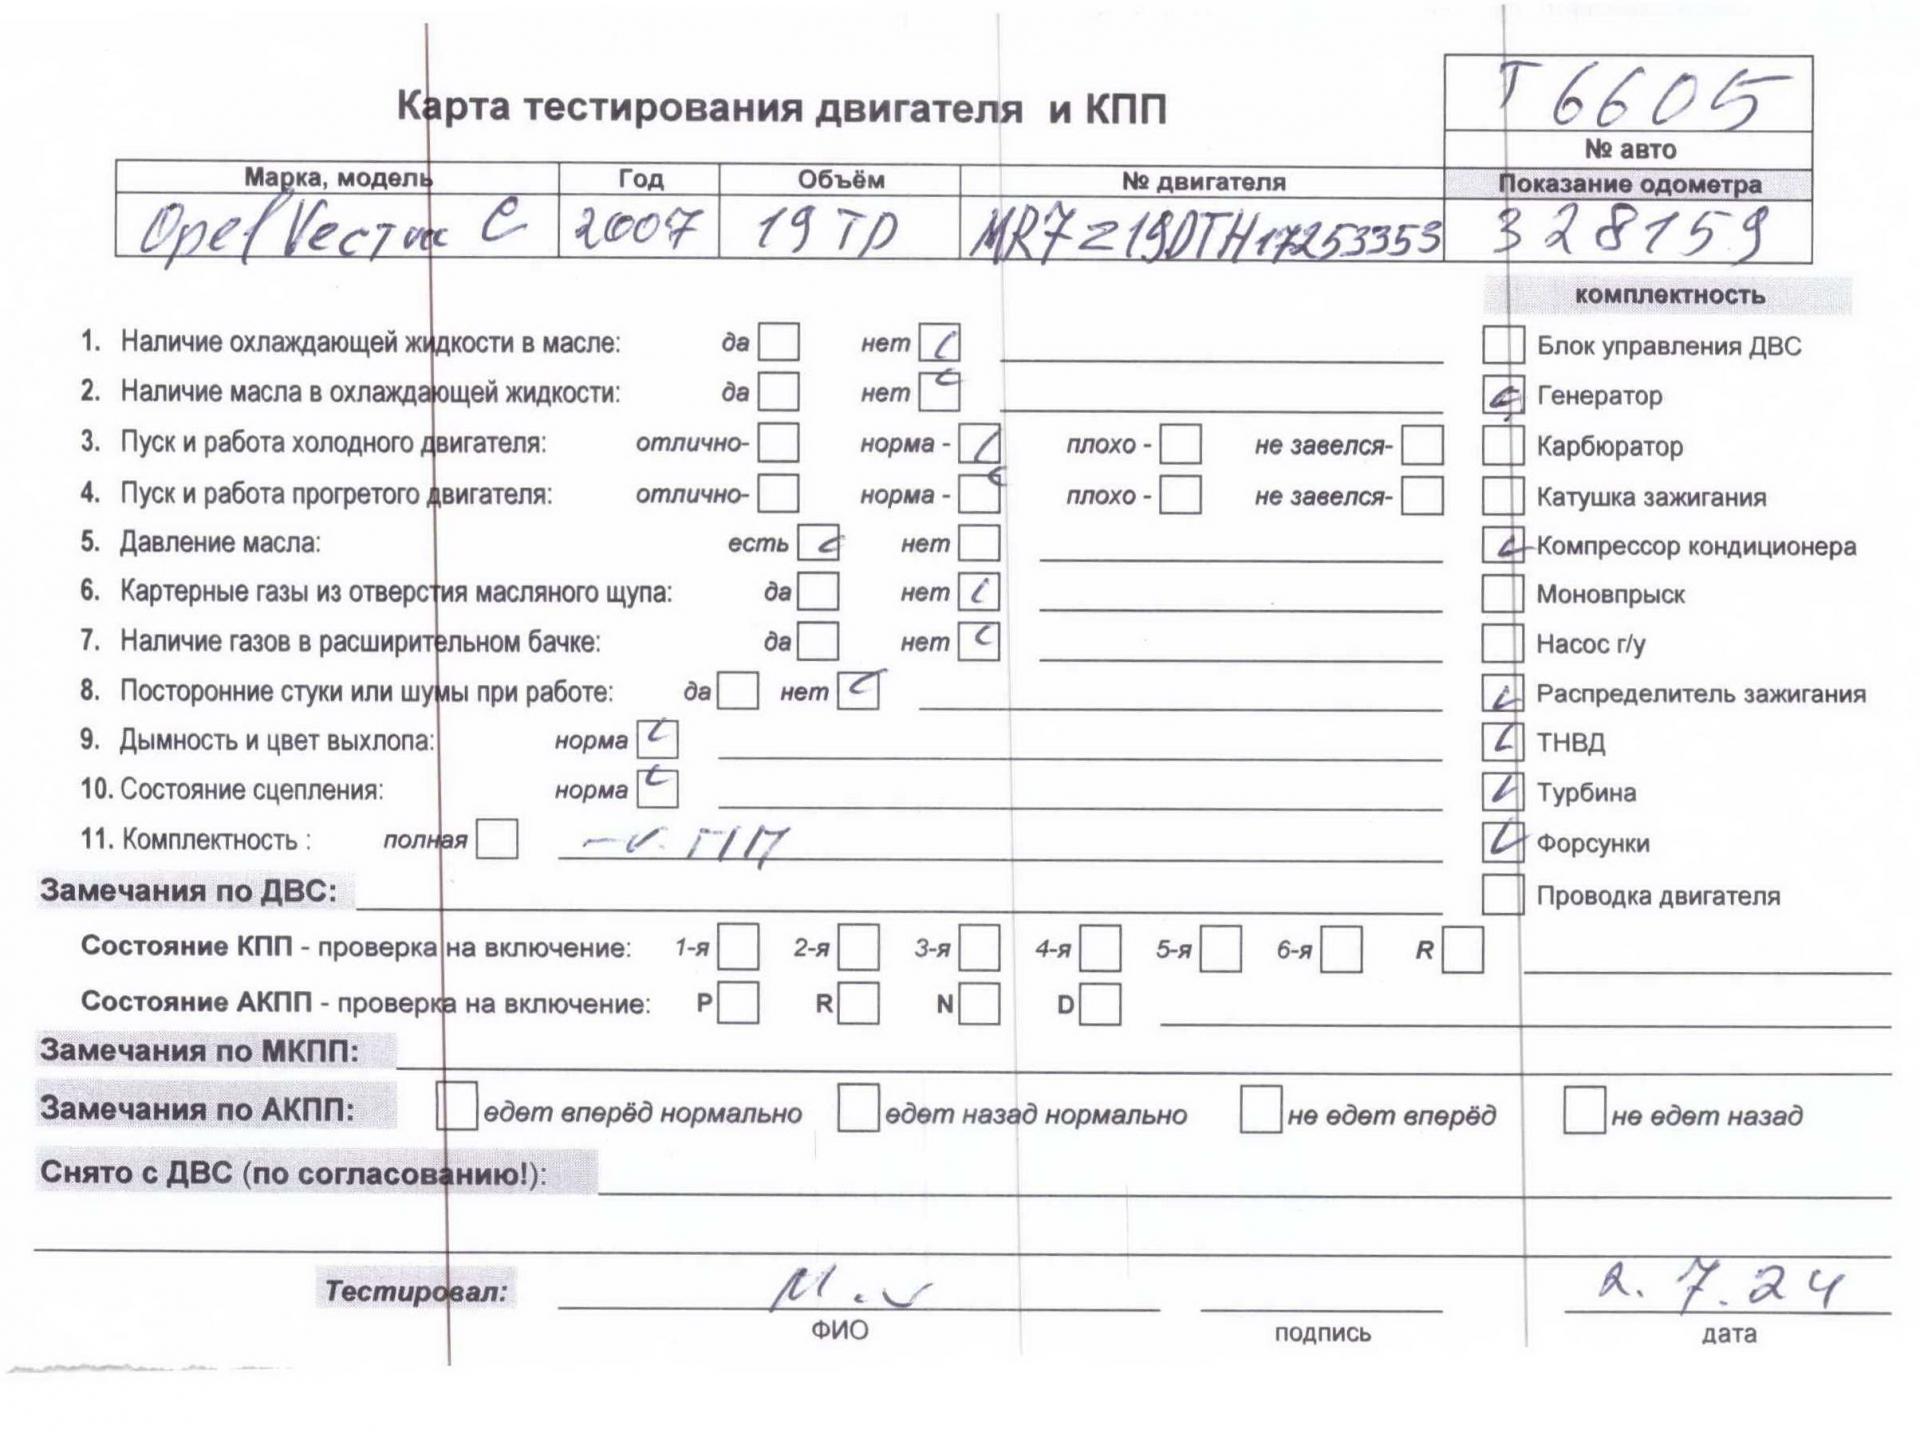 Т6605
Карта тестирования двигателя и КПП
№ авто
Марка, модель Год Объём № двигателя Показание одометра
Opel Vectra C 2007 19 TD MR7Z19DTH17253353 328159
комплектность
1. Наличие охлаждающей жидкости в масле: да нет
Блок управления ДВС
2. Наличие масла в охлаждающей жидкости: да нет
Генератор
3. Пуск и работа холодного двигателя: отлично- норма - плохо - не завелся-
Карбюратор
4. Пуск и работа прогретого двигателя: отлично- норма - плохо - не завелся-
Катушка зажигания
5. Давление масла: есть нет
Компрессор кондиционера
6. Картерные газы из отверстия масляного щупа: да нет
Моновпрыск
7. Наличие газов в расширительном бачке: да нет
Насос г/у
8. Посторонние стуки или шумы при работе: да нет
Распределитель зажигания
9. Дымность и цвет выхлопа: норма
ТНВД
10. Состояние сцепления: норма
Турбина
11. Комплектность : полная
Форсунки
Замечания по ДВС:
Проводка двигателя
Состояние КПП - проверка на включение: 1-я 2-я 3-я 4-я 5-я 6-я R
Состояние АКПП - проверка на включение: P R N D
Замечания по МКПП:
Замечания по АКПП: едет вперёд нормально едет назад нормально не едет вперёд не едет назад
Снято с ДВС (по согласованию!):
Тестировал: 2.7.24
ФИО подпись дата